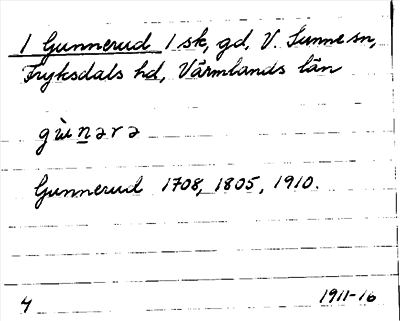 1 Gunnerud 1 sk, gd, V. Sunne sn,
Fryksdals hd, Värmlands län
gùnərə
Gunnerud 1708, 1805, 1910.
4 1911-16